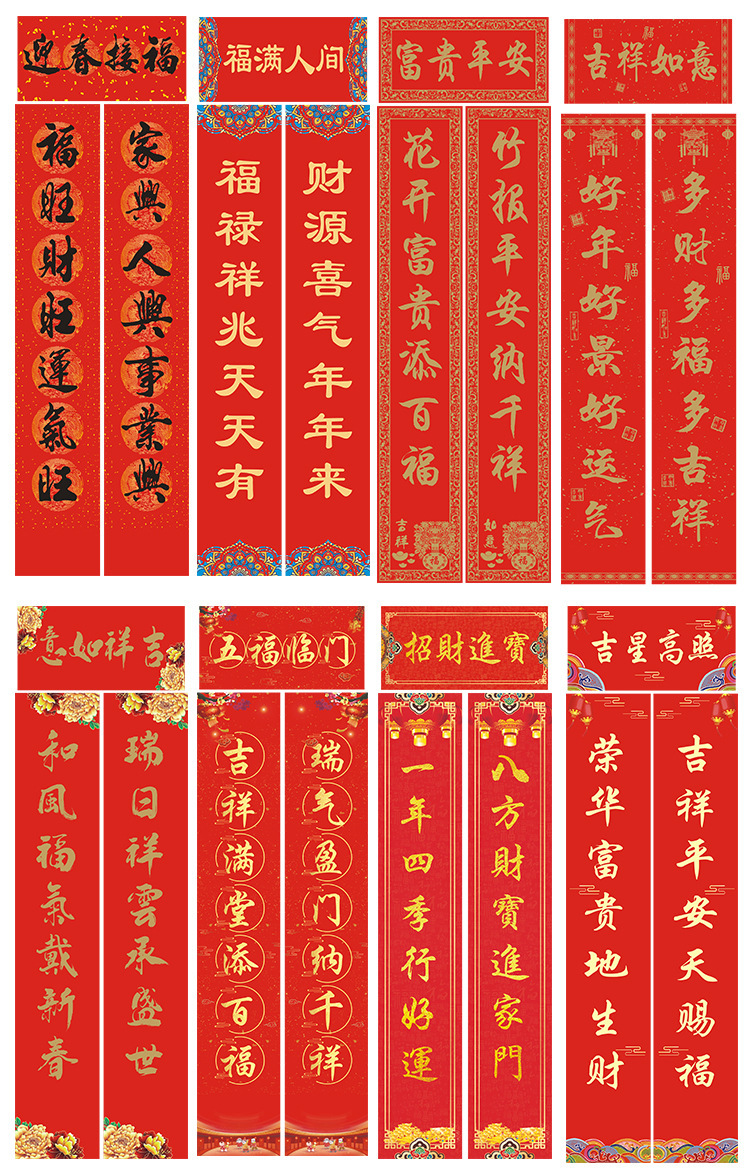 迎春接福
家興人興事業興
福旺財旺運氣旺
福满人间
财源喜气年年来
福禄祥兆天天有
富贵平安
竹报平安纳千祥
如意
福
花开富贵添百福
吉祥
福
吉祥如意
福
多财多福多吉祥
福
好年好景好运气
福
吉祥如意
瑞日祥雲承盛世
和風福氣戴新春
五福临门
瑞气盈门纳千祥
吉祥满堂添百福
招財進寶
八方財寶進家門
一年四季行好運
吉星高照
吉祥平安天赐福
荣华富贵地生财